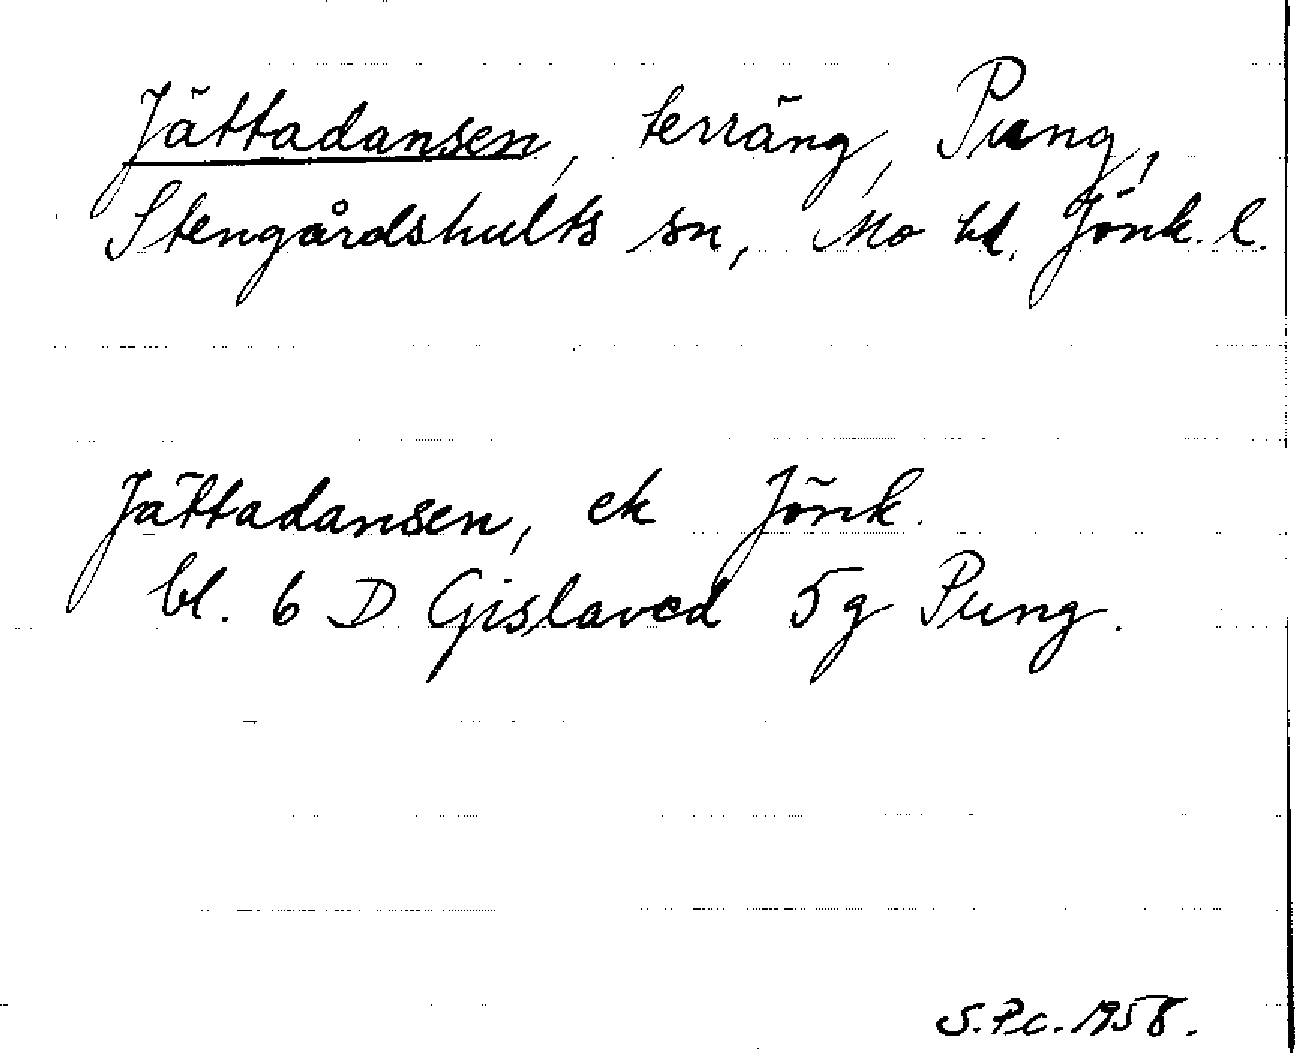 Jättadansen, terräng, Pung,
Stengårdshults sn, Mo hd. Jönk. l.
Jättadansen, ek Jönk.
bl. 6 D Gislaved 5g Pung.
S.Pc. 1958.